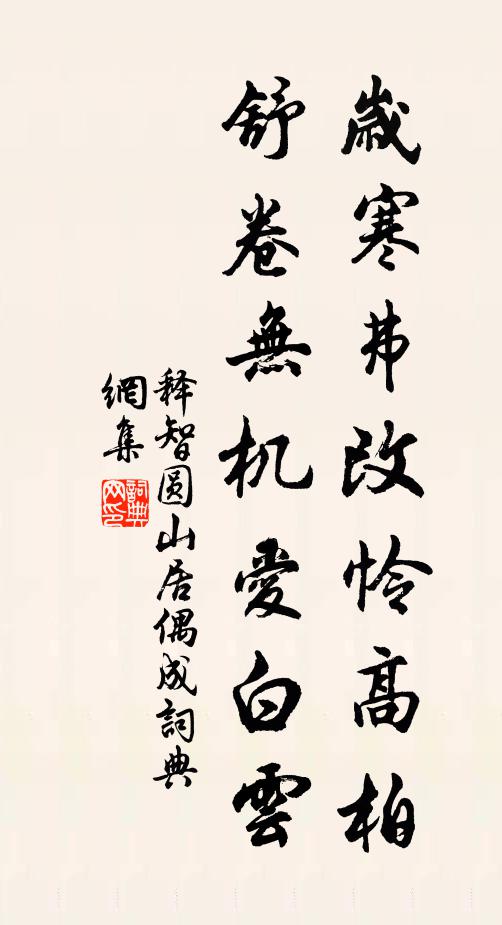 歲寒弗改怜高柏
舒卷無机愛白雲
释智圓山居偶成詞典
網集
詞典
网印